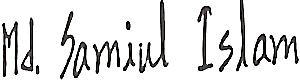 Md. Samiul Islam